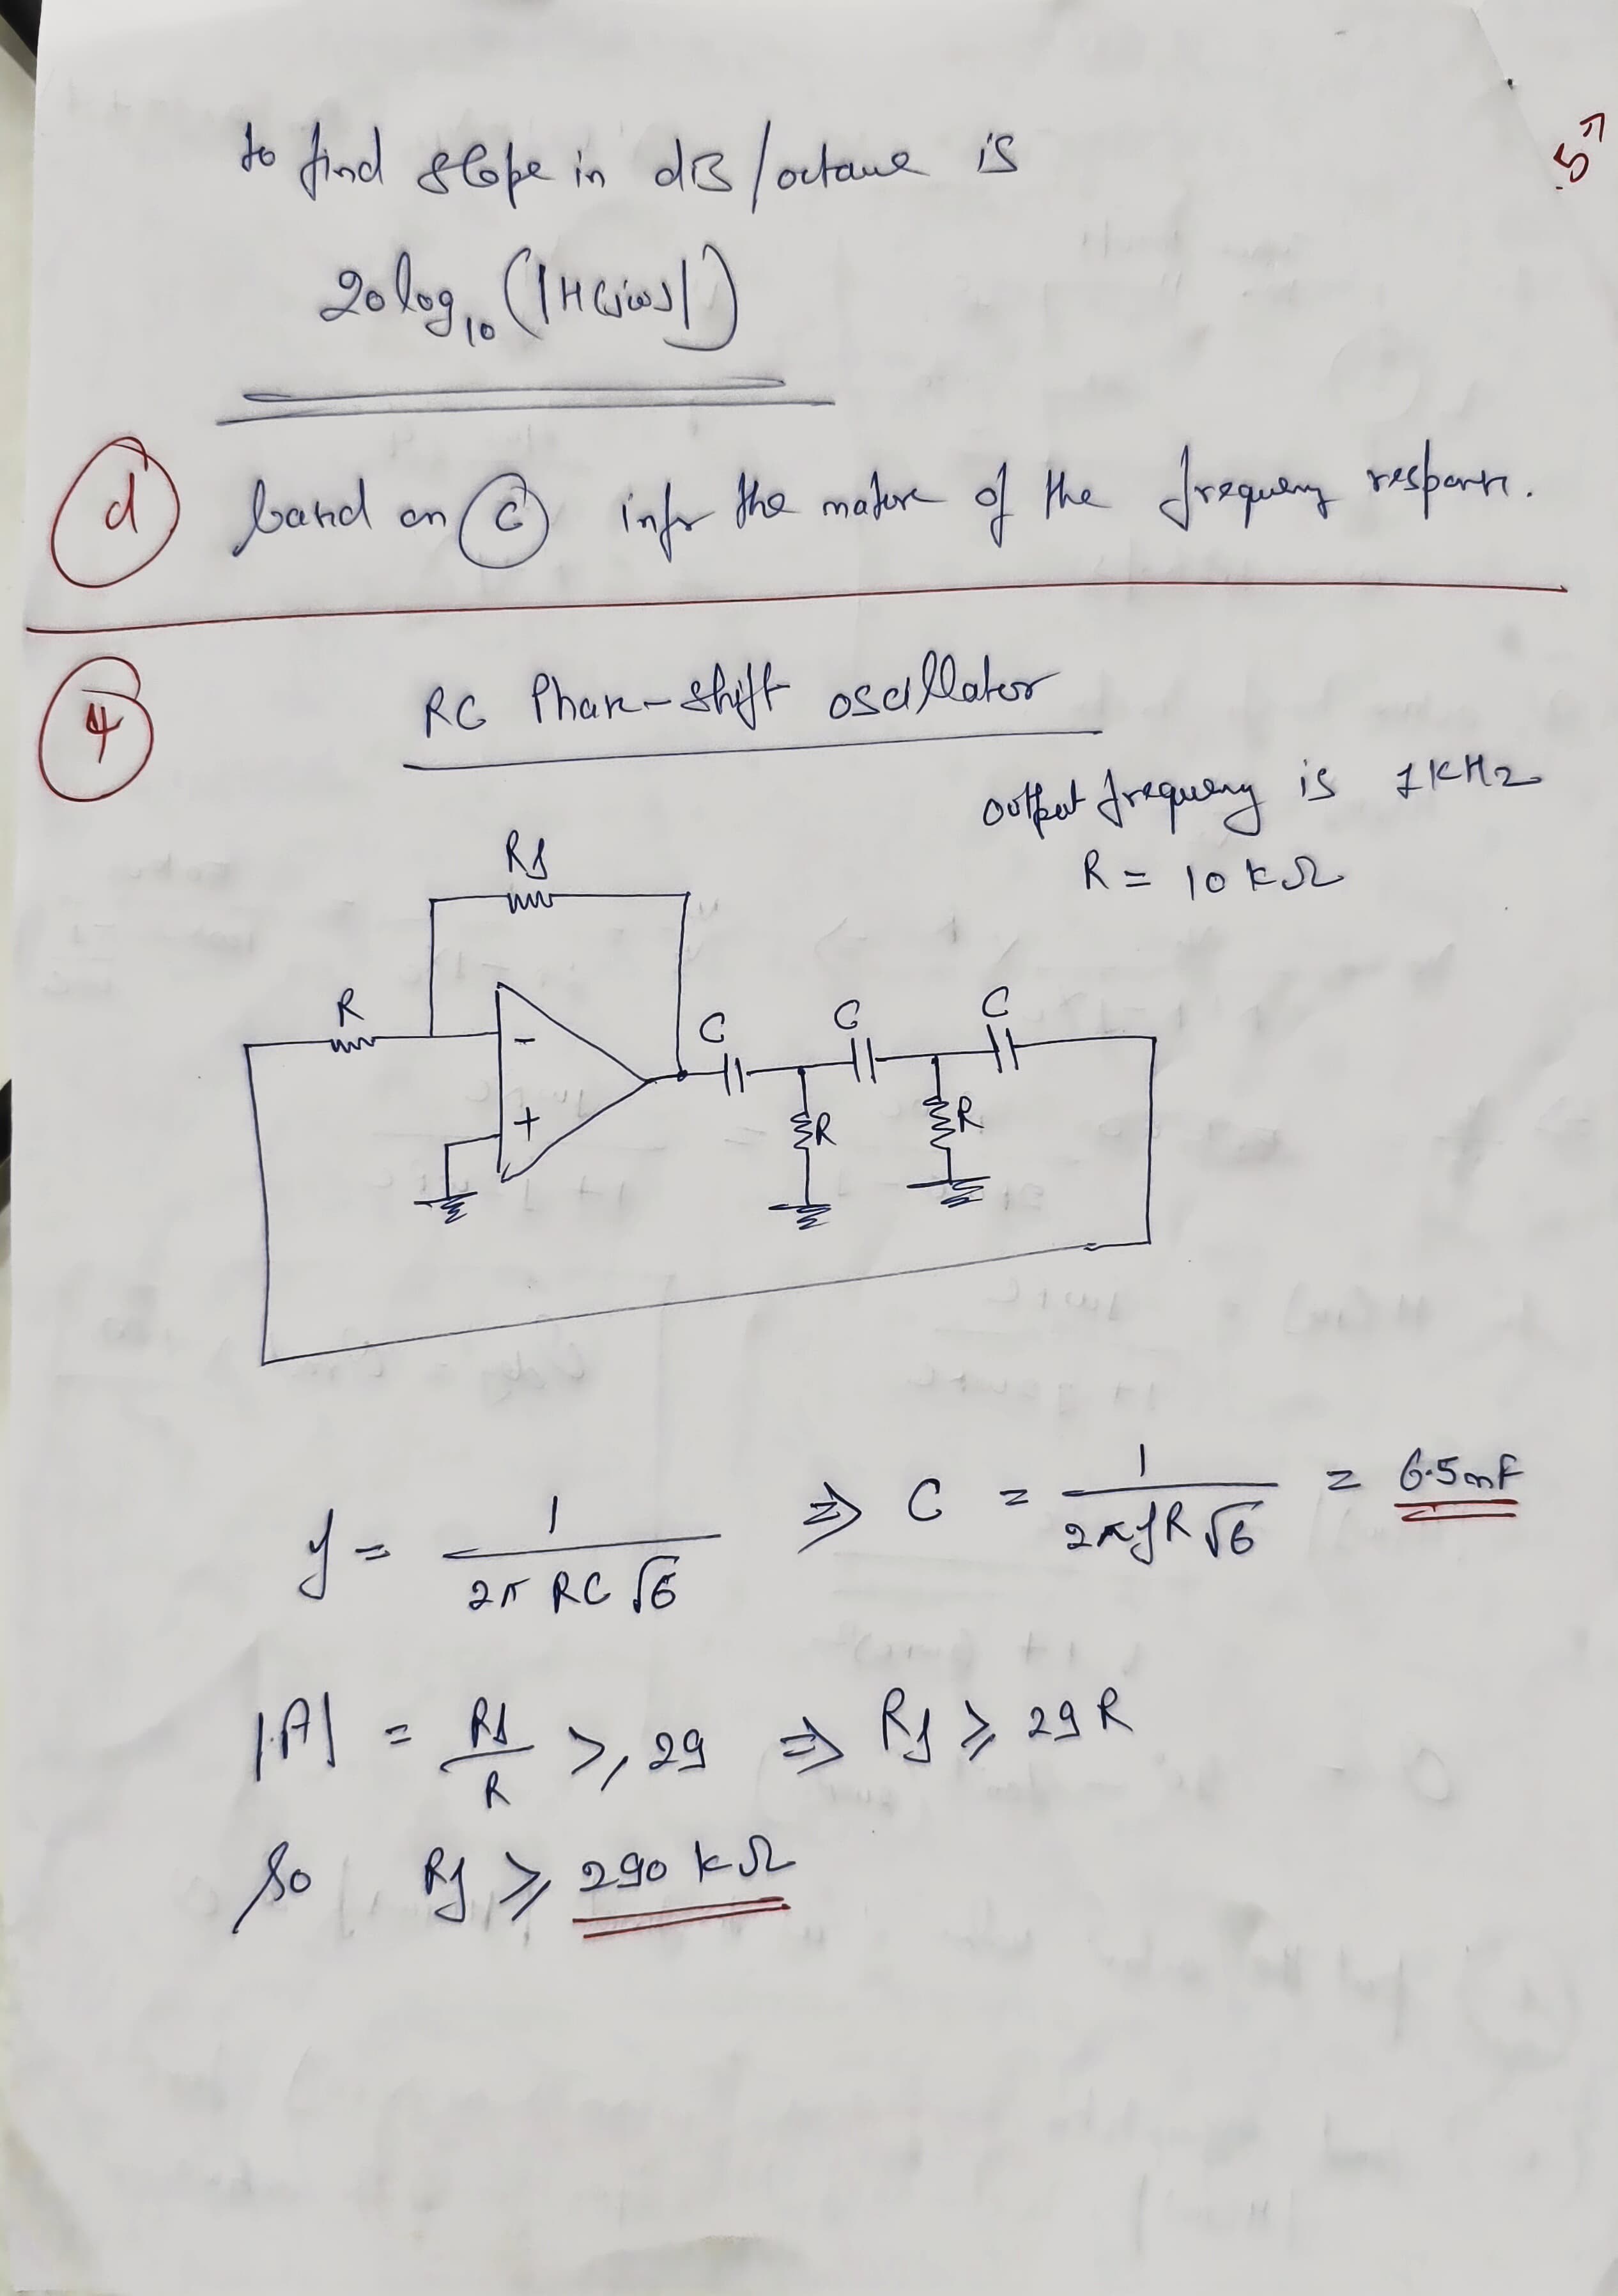 .5>
to find slope in dB/octave is
20 log₁₀ (|H(jω)|)
d based on C infr the nature of the frequency response.
4 RC Phase-shift oscillator
output frequency is 1KHz
R = 10 kΩ
Rf
R
C C C
-
+
R R
f = 1 / (2π RC √6) ⇒ C = 1 / (2π f R √6) = 6.5nF
|A| = Rf / R ≥ 29 ⇒ Rf ≥ 29 R
So Rf ≥ 290 kΩ